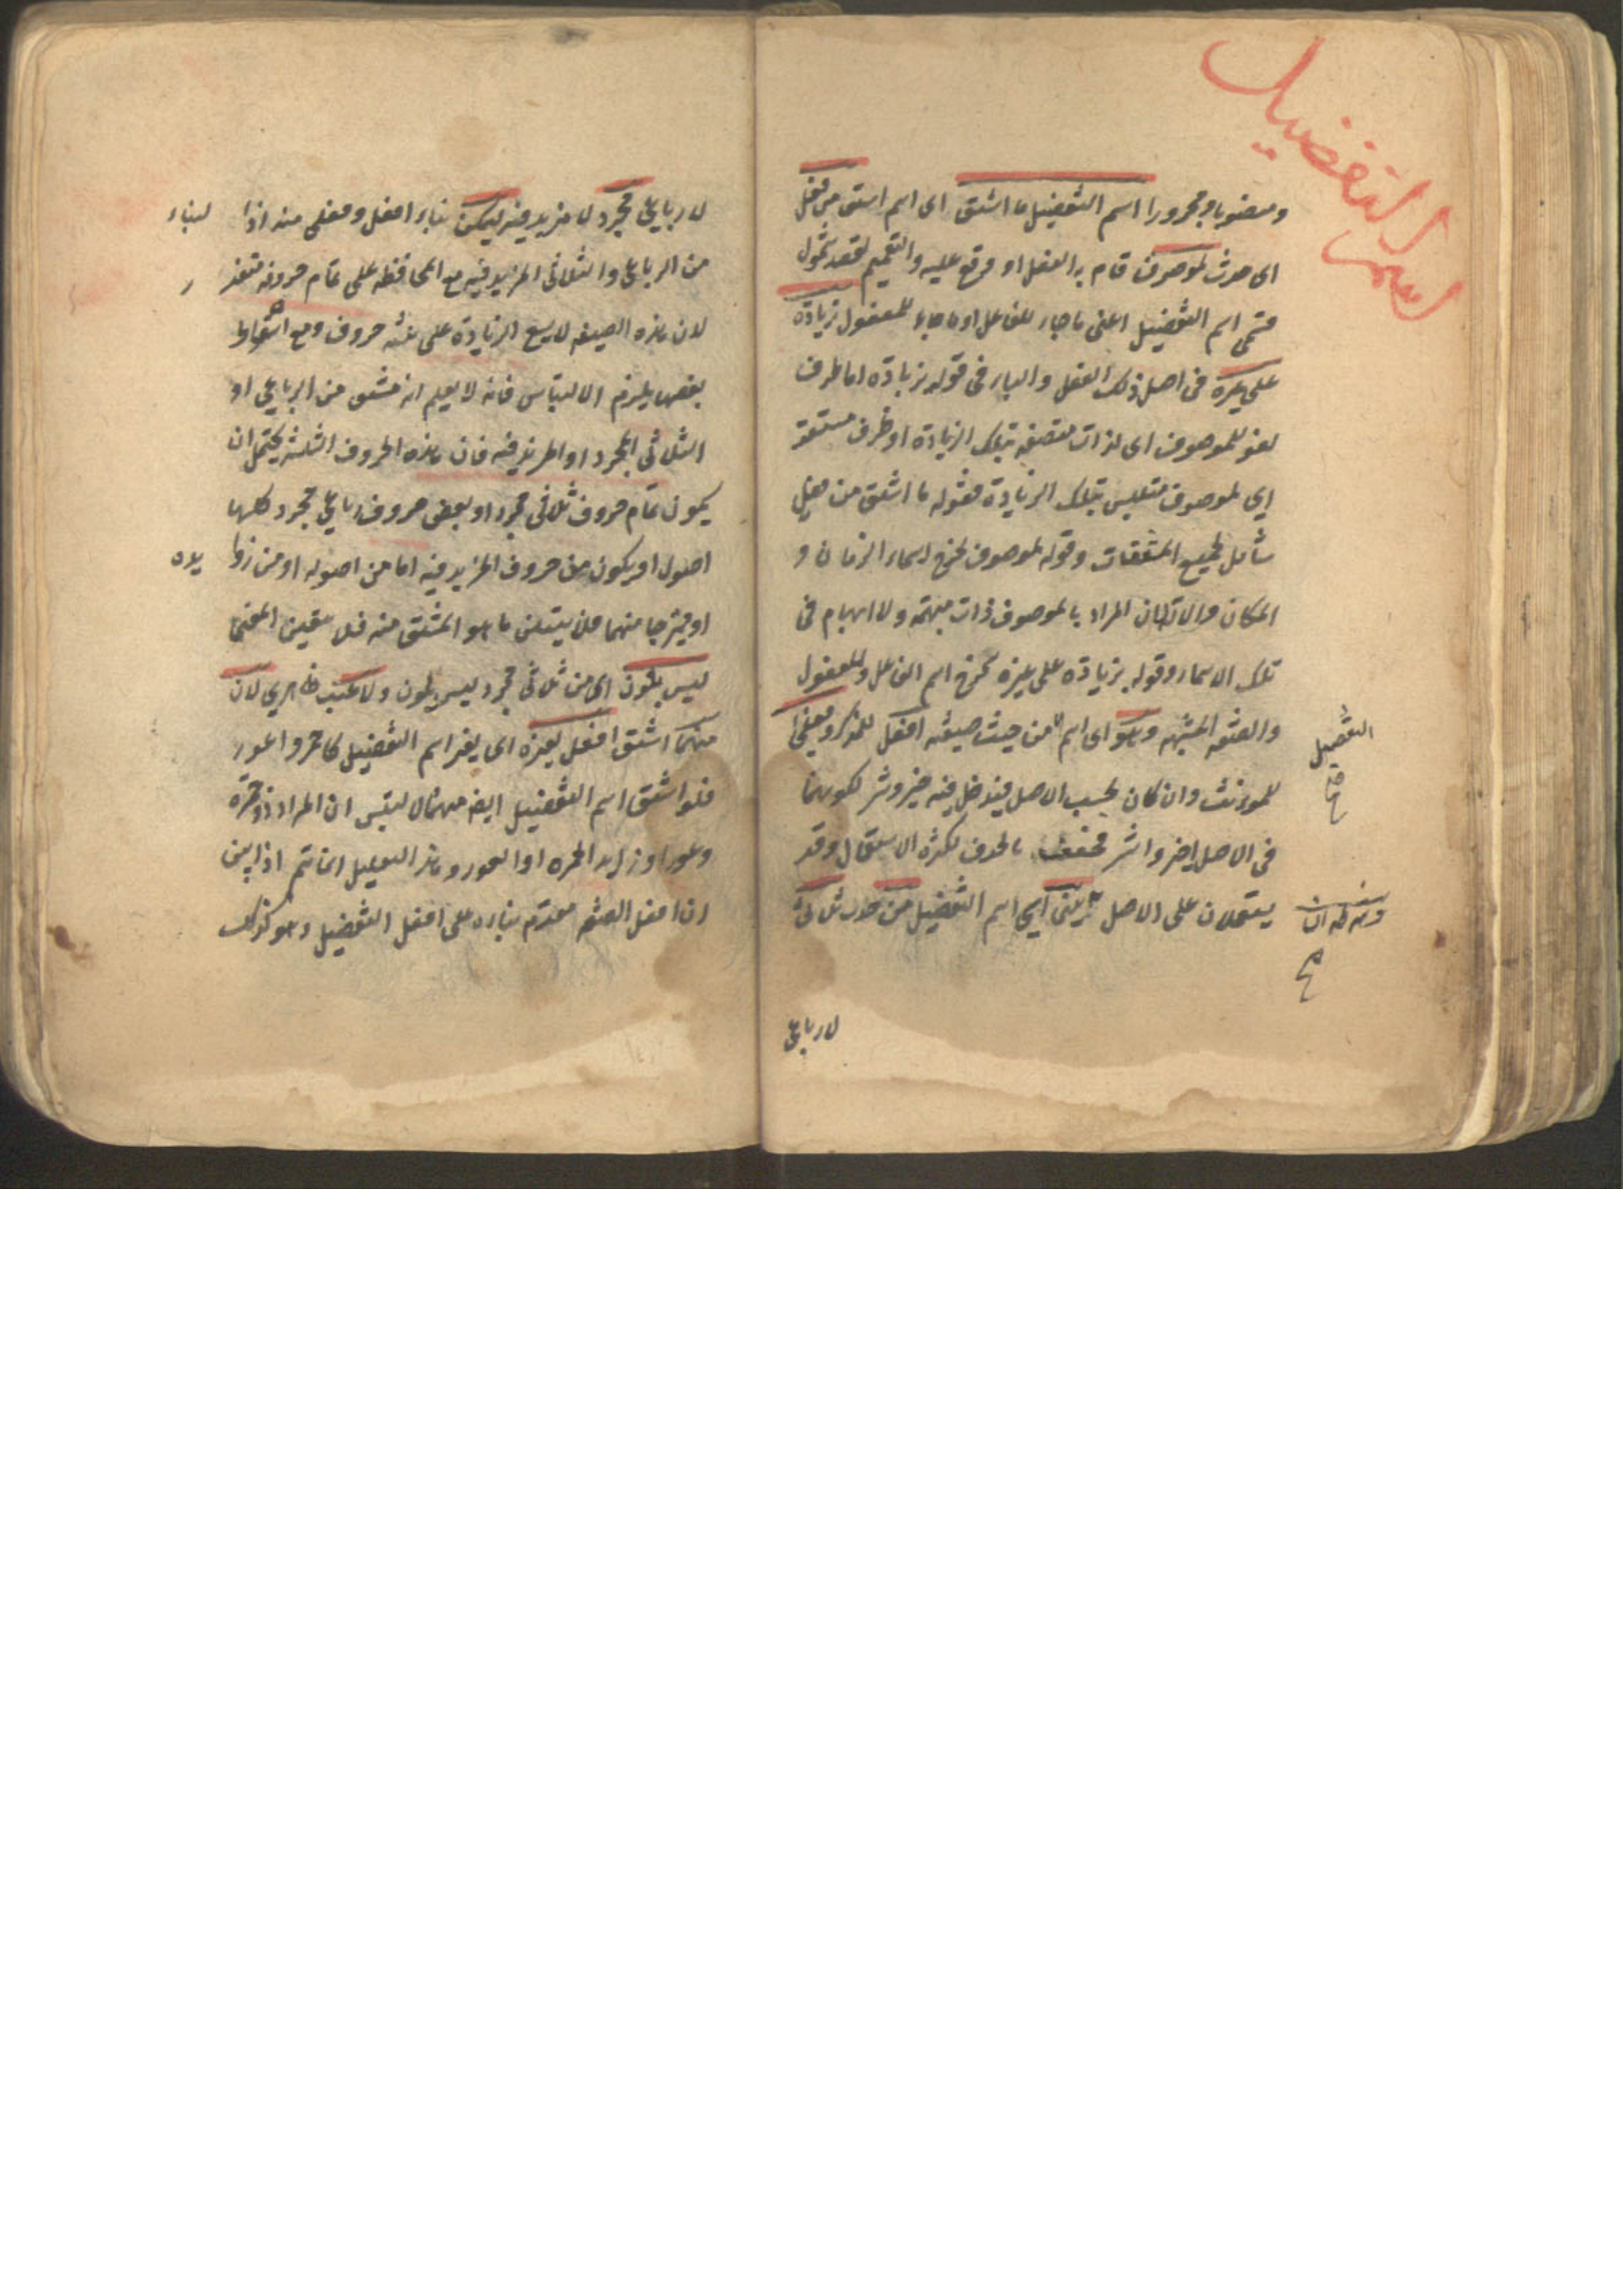 اسم التفضيل
ومنصوبا ومجرورا اسم التفضيل ما اشتق اى اسم اشتق من فعل
اى حدث لموصوف قام به الفعل او وقع عليه والتعميم لقصد شمول
قسمى اسم التفضيل اعنى ما جاء للفاعل او ما جاء للمفعول بزيادة
على غيره فى اصل ذلك الفعل والباء فى قوله بزيادة اما ظرف
لغو للموصوف اى لذات متصفة بتلك الزيادة او ظرف مستقر
اى لموصوف متلبس بتلك الزيادة فقوله ما اشتق من فعل
شامل لجميع المشتقات وقوله لموصوف يخرج اسماء الزمان و
المكان والالة لان المراد بالموصوف ذات مبهمة ولا ابهام فى
تلك الاسماء وقوله بزيادة على غيره يخرج اسم الفاعل والمفعول
والصفة المشبهة وهو اى اسم من حيث صيغته افعل للمذكر وفعلى
التفضيل
صح
للمونث وان كان بحسب الاصل فيدخل فيه خير وشر لكونهما
فى الاصل اخير واشر فخففتا بالحذف لكثرة الاستعمال وقد
يستعملان على الاصل يبنى اى اسم التفضيل من حدث ثلاثى
وشرطه ان
صح
لا رباعى
لا رباعى مجرد لا مزيد فيه ليمكن بناء افعل وفعلى منه اذا لبناء
من الرباعى والثلاثى المزيد فيه مع المحافظة على تمام حروفه متعذ ر
لان هذه الصيغة لا يسع الزيادة على ثلثة حروف ومع اسقاط
بعضها يلزم الالتباس فانه لا يعلم انه مشتق من الرباعى او
الثلاثى المجرد او المزيد فيه فان هذه الحروف الثلثة يحتمل ان
يكون تمام حروف ثلاثى مجرد او بعض حروف رباعى مجرد كلها
اصول او يكون من حروف المزيد فيه اما من اصوله او من زوا يده
او ممتزجا منهما فلا يتبين ما هو المشتق منه فلا يتعين المعنى
ليس بلون اى من ثلاثى مجرد ليس بلون ولا عيب ظاهرى لان
منهما اشتق افعل لغيره اى لغير اسم التفضيل كاحمر واعور
فلو اشتق اسم التفضيل ايضا منهما لالتبس ان المراد ذو حمرة
وعور او زايد الحمرة او العور وهذا التعليل انما يتم اذا بين
ان افعل الصفة مقدم بناؤه على افعل التفضيل وهو كذلك